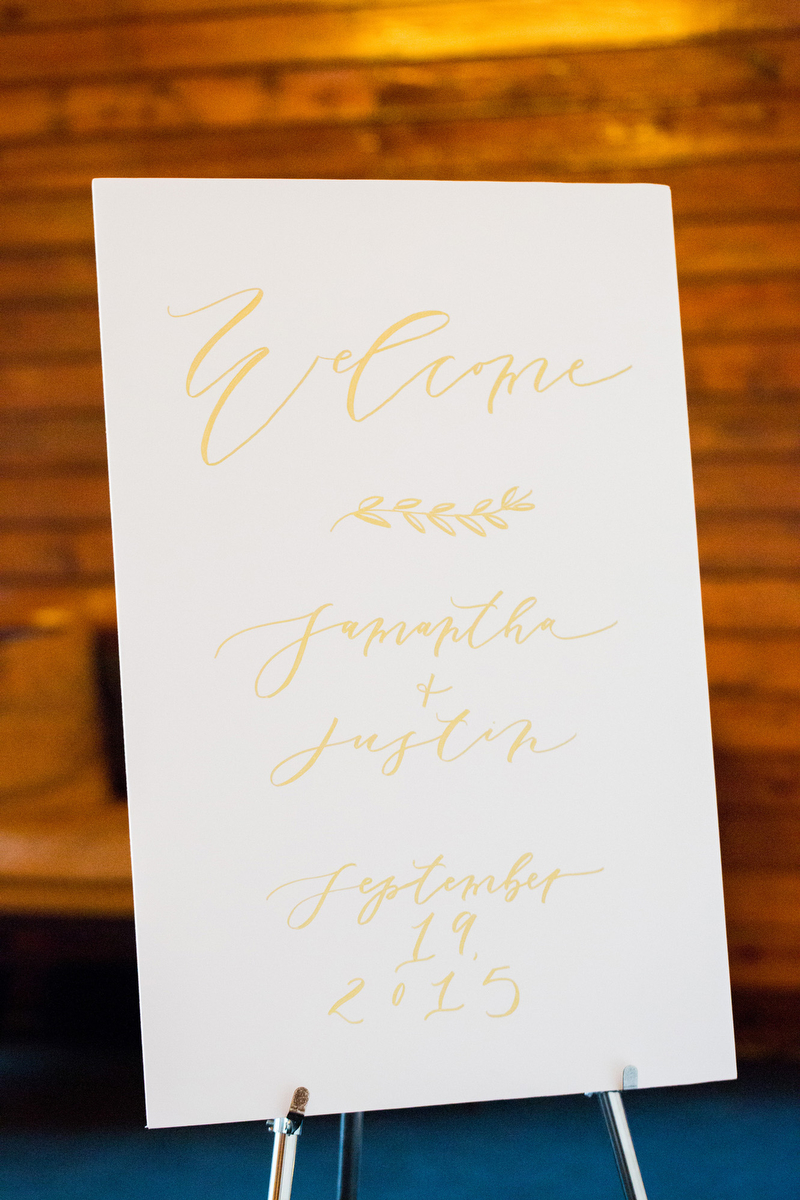 Welcome
Samantha
+
Justin
September
19,
2015